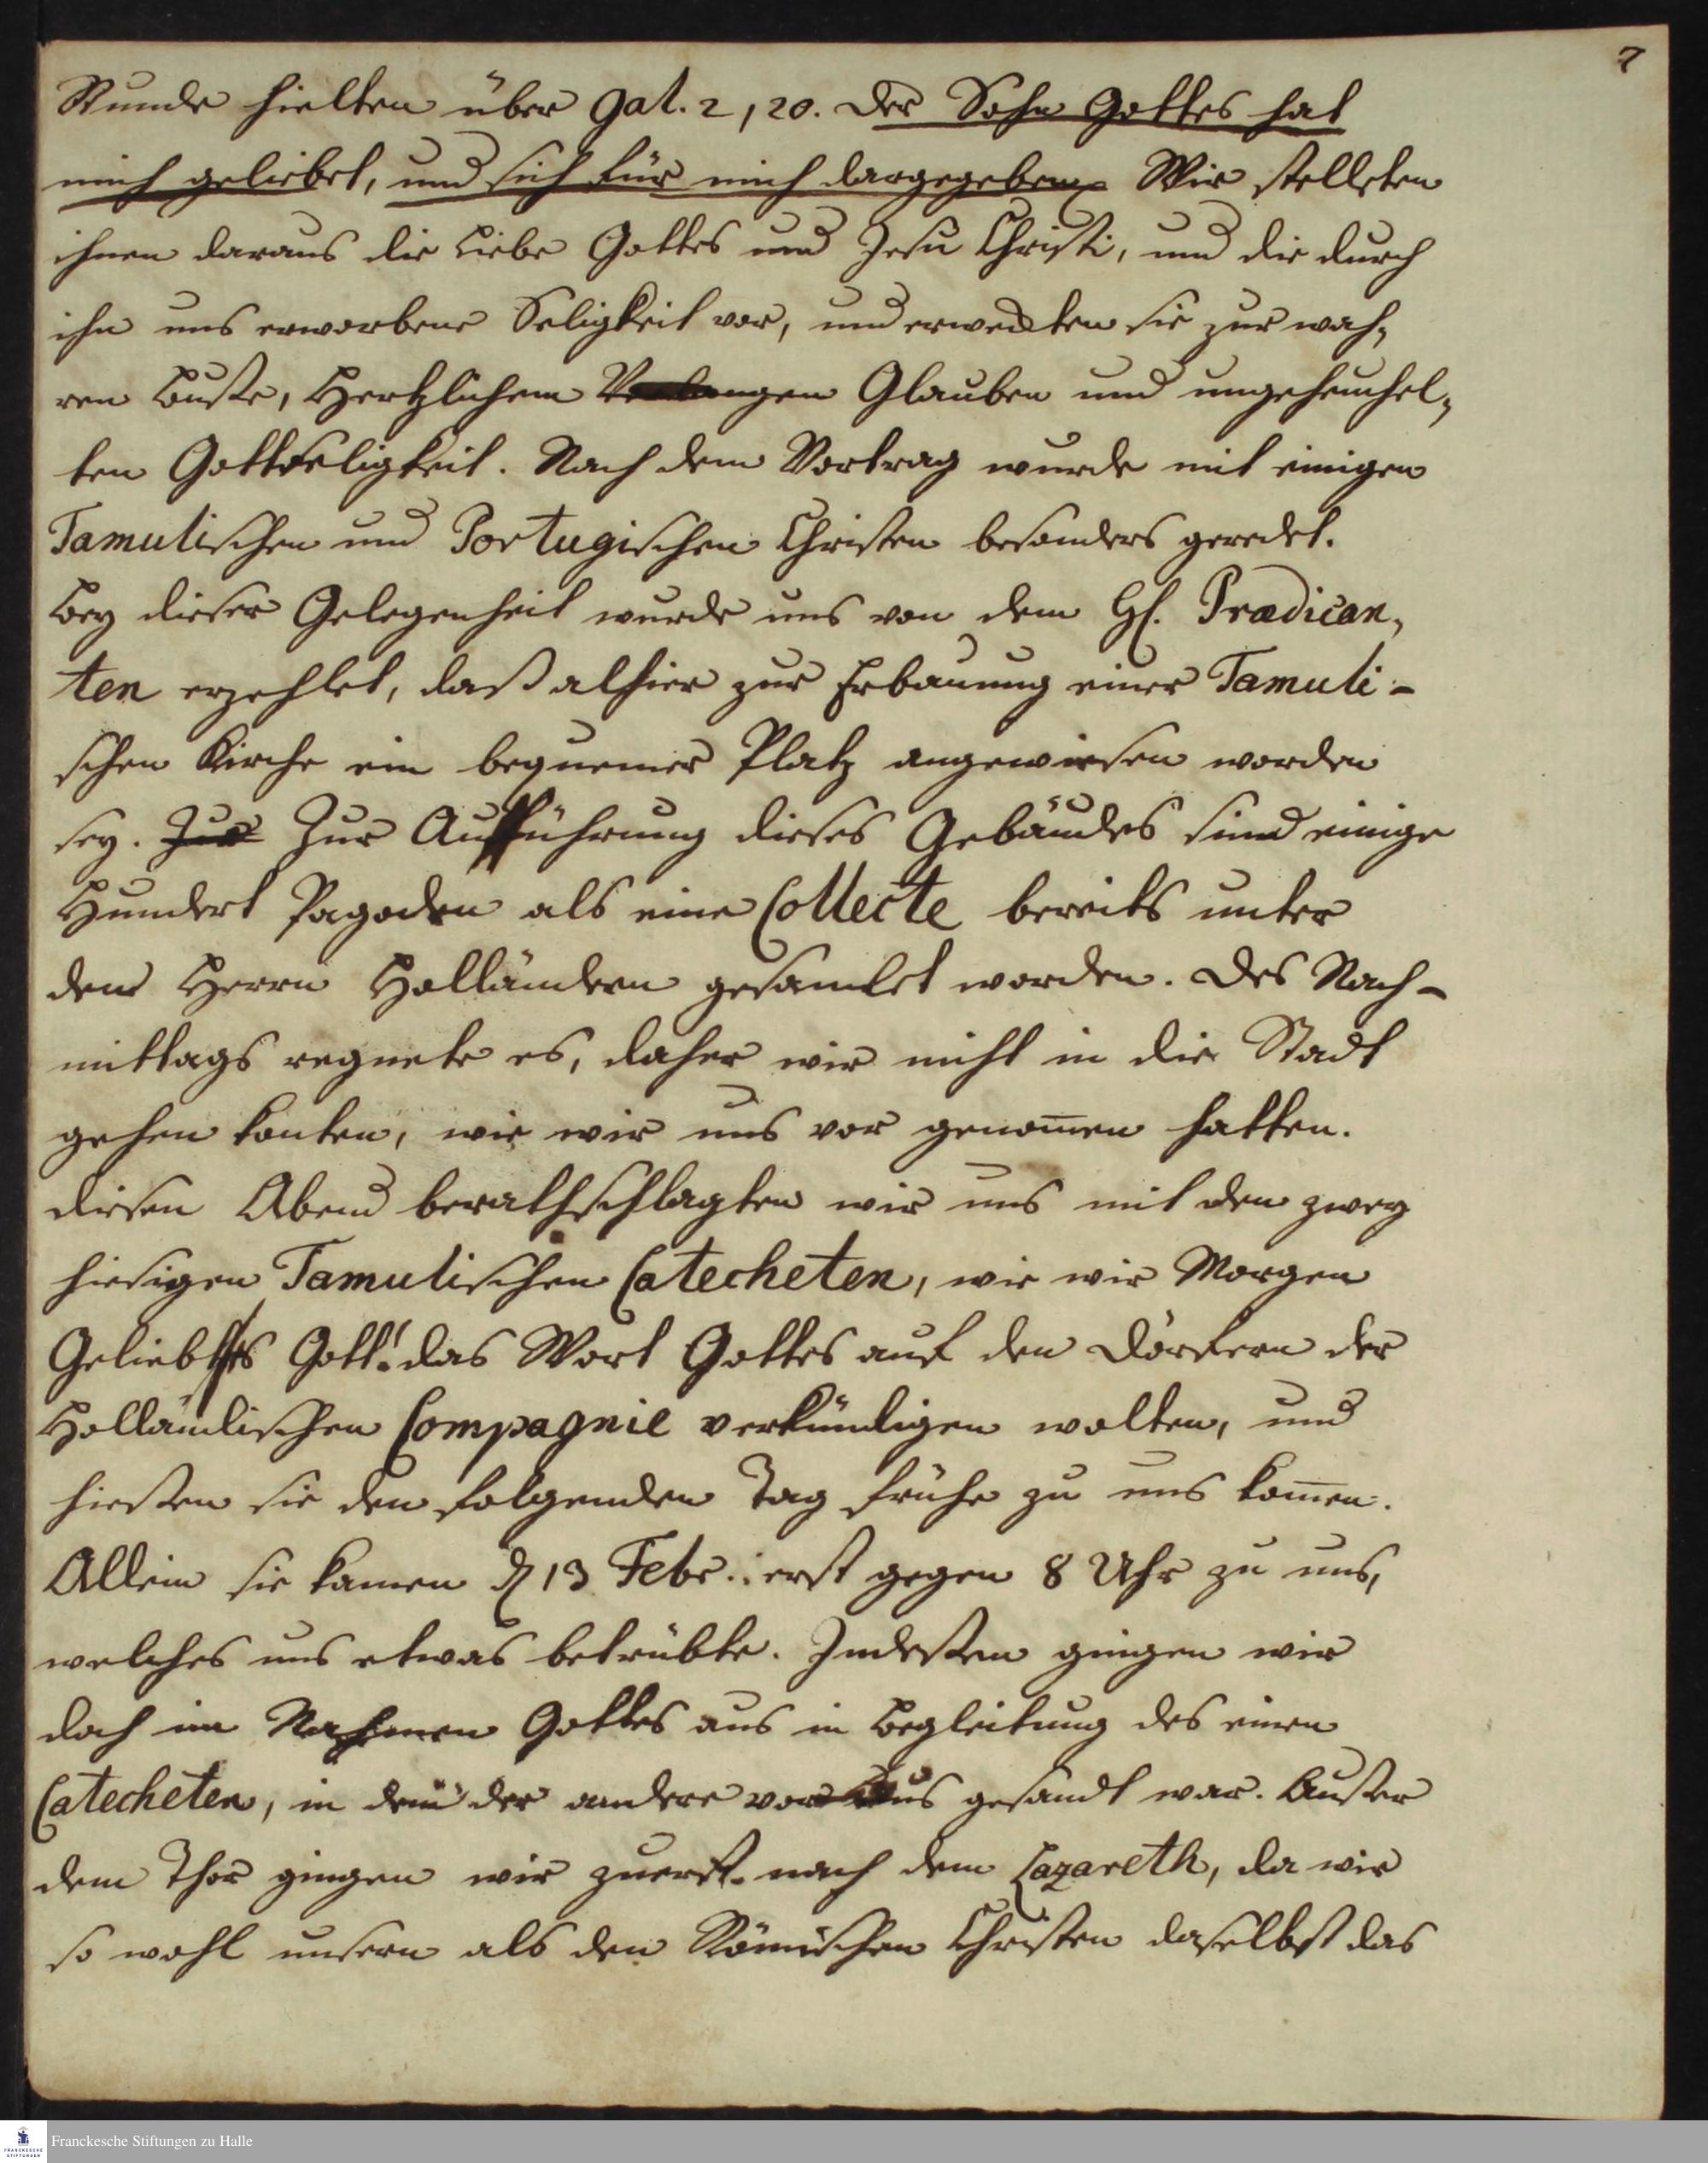 7
Stunde hielten über Gal. 2, 20. Der Sohn Gottes hat
mich geliebet, und sich für mich dargegeben. Wir stelleten
ihnen daraus die Liebe Gottes und Jesu Christi, und die durch
ihn uns erworbene Seligkeit vor, und erweckten sie zur wah,
ren Buße, Hertzlichem Verlangen Glauben und ungeheuchel,
ten Gottseligkeit. Nach dem Vortrag wurde mit einigen
Tamulischen und Portugischen Christen besonders geredet.
Bey dieser Gelegenheit wurde uns von dem H. Prædican,
ten erzehlet, daß alhier zur Erbauung einer Tamuli-
schen Kirche ein bequemer Platz angewiesen worden
sey. Zur Zur Aufführung dieses Gebäudes sind einige
Hundert Pagoden als eine Collecte bereits unter
den Herrn Holländern gesamlet worden. Des Nach-
mittags regnete es, daher wir nicht in die Stadt
gehen konten, wie wir uns vor genom̅en hatten.
Diesen Abend berathschlagten wir uns mit den zwey
hiesigen Tamulischen Catecheten, wie wir Morgen
Geliebts Gott! das Wort Gottes auf den Dörfern der
Holländischen Compagnie verkündigen wolten, und
hießen sie den folgenden Tag frühe zu uns kom̅en.
Allein sie kamen d 13 Febr. erst gegen 8 Uhr zu uns,
welches uns etwas betrübte. Indeßen gingen wir
doch im Nahmen Gottes aus in Begleitung des einen
Catecheten, in dem der andere voraus gesandt war. Außer
dem Thor gingen wir zuerst nach dem Lazareth, da wir
so wohl unsern als den Römischen Christen daselbst das
Franckesche Stiftungen zu Halle